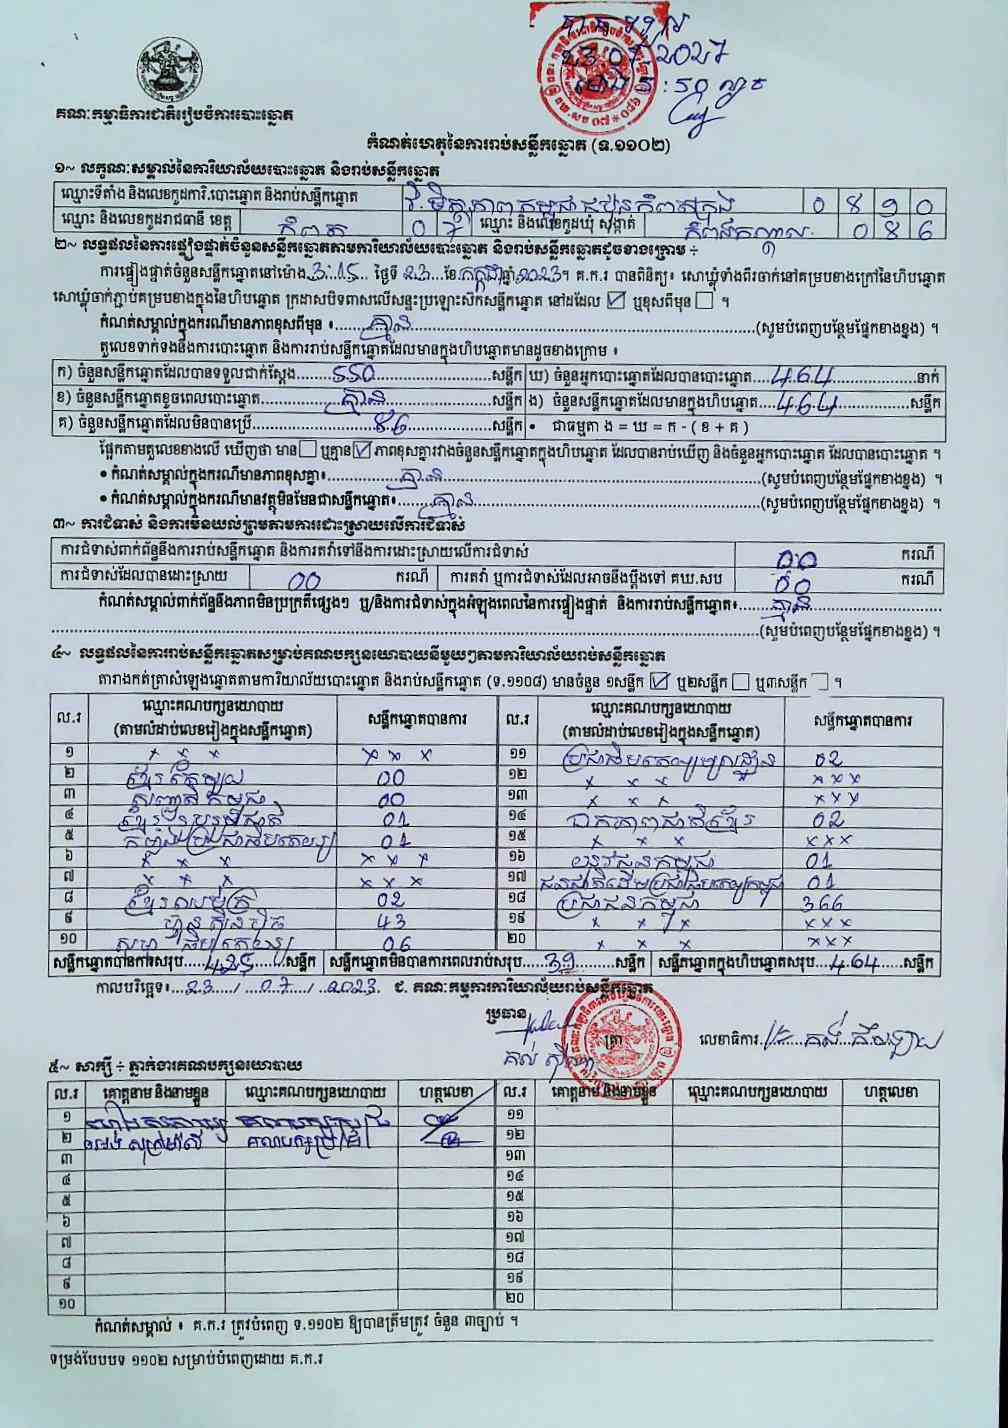 គណៈកម្មាធិការជាតិរៀបចំការបោះឆ្នោត
កំណត់ហេតុនៃការរាប់សន្លឹកឆ្នោត (ទ.១១០២)
១~ លក្ខណៈសម្គាល់នៃការិយាល័យបោះឆ្នោត និងរាប់សន្លឹកឆ្នោត
ឈ្មោះទីតាំង និងលេខកូដការិ.បោះឆ្នោត និងរាប់សន្លឹកឆ្នោត
ឈ្មោះ និងលេខកូដរាជធានី ខេត្ត កំពត 0 7 ឈ្មោះ និងលេខកូដឃុំ សង្កាត់ 0 8 6
២~ លទ្ធផលនៃការផ្ទៀងផ្ទាត់ចំនួនសន្លឹកឆ្នោតតាមការិយាល័យបោះឆ្នោត និងរាប់សន្លឹកឆ្នោតដូចខាងក្រោម ÷
ការផ្ទៀងផ្ទាត់ចំនួនសន្លឹកឆ្នោតនៅម៉ោង 3:15 ថ្ងៃទី 23 ខែ កក្កដា ឆ្នាំ 2023 ។ គ.ក.រ បានពិនិត្យ៖ សោឃ្លុំទាំងពីរចាក់នៅគម្របខាងក្រៅនៃហិបឆ្នោត
សោឃ្លុំចាក់ភ្ជាប់គម្របខាងក្នុងនៃហិបឆ្នោត ក្រដាសបិទពាសលើសន្ទះប្រឡោះសឹកសន្លឹកឆ្នោត នៅដដែល ☑ ឬខុសពីមុន ☐ ។
កំណត់សម្គាល់ក្នុងករណីមានភាពខុសពីមុន ៖ គ្មាន (សូមបំពេញបន្ថែមផ្នែកខាងខ្នង) ។
តួលេខទាក់ទងនឹងការបោះឆ្នោត និងការរាប់សន្លឹកឆ្នោតដែលមានក្នុងហិបឆ្នោតមានដូចខាងក្រោម ៖
ក) ចំនួនសន្លឹកឆ្នោតដែលបានទទួលជាក់ស្តែង 550 សន្លឹក ឃ) ចំនួនអ្នកបោះឆ្នោតដែលបានបោះឆ្នោត 464 នាក់
ខ) ចំនួនសន្លឹកឆ្នោតខូចពេលបោះឆ្នោត គ្មាន សន្លឹក ង) ចំនួនសន្លឹកឆ្នោតដែលមានក្នុងហិបឆ្នោត 464 សន្លឹក
គ) ចំនួនសន្លឹកឆ្នោតដែលមិនបានប្រើ 86 សន្លឹក • ជាធម្មតា ង = ឃ = ក - ( ខ + គ )
ផ្អែកតាមតួលេខខាងលើ ឃើញថា មាន ☐ ឬគ្មាន ☑ ភាពខុសគ្នារវាងចំនួនសន្លឹកឆ្នោតក្នុងហិបឆ្នោត ដែលបានរាប់ឃើញ និងចំនួនអ្នកបោះឆ្នោត ដែលបានបោះឆ្នោត ។
• កំណត់សម្គាល់ក្នុងករណីមានភាពខុសគ្នា៖ គ្មាន (សូមបំពេញបន្ថែមផ្នែកខាងខ្នង) ។
• កំណត់សម្គាល់ក្នុងករណីមានវត្ថុមិនមែនជាសន្លឹកឆ្នោត៖ គ្មាន (សូមបំពេញបន្ថែមផ្នែកខាងខ្នង) ។
៣~ ការជំទាស់ និងការមិនយល់ព្រមតាមការដោះស្រាយលើការជំទាស់
ការជំទាស់ពាក់ព័ន្ធនឹងការរាប់សន្លឹកឆ្នោត និងការតវ៉ាទៅនឹងការដោះស្រាយលើការជំទាស់ 00 ករណី
ការជំទាស់ដែលបានដោះស្រាយ 00 ករណី ការតវ៉ា ឬការជំទាស់ដែលអាចនឹងប្តឹងទៅ គឃ.សប 00 ករណី
កំណត់សម្គាល់ពាក់ព័ន្ធនឹងភាពមិនប្រក្រតីផ្សេងៗ ឬ/និងការជំទាស់ក្នុងអំឡុងពេលនៃការផ្ទៀងផ្ទាត់ និងការរាប់សន្លឹកឆ្នោត៖ គ្មាន
(សូមបំពេញបន្ថែមផ្នែកខាងខ្នង) ។
៤~ លទ្ធផលនៃការរាប់សន្លឹកឆ្នោតសម្រាប់គណបក្សនយោបាយនីមួយៗតាមការិយាល័យរាប់សន្លឹកឆ្នោត
តារាងកត់ត្រាសំឡេងឆ្នោតតាមការិយាល័យបោះឆ្នោត និងរាប់សន្លឹកឆ្នោត (ទ.១១០៨) មានចំនួន ១សន្លឹក ☑ ឬ២សន្លឹក ☐ ឬ៣សន្លឹក ☐ ។
ល.រ ឈ្មោះគណបក្សនយោបាយ (តាមលំដាប់លេខរៀងក្នុងសន្លឹកឆ្នោត) សន្លឹកឆ្នោតបានការ ល.រ ឈ្មោះគណបក្សនយោបាយ (តាមលំដាប់លេខរៀងក្នុងសន្លឹកឆ្នោត) សន្លឹកឆ្នោតបានការ
១ x x x x x x ១១ 02
២ 00 ១២ x x x x x x
៣ 00 ១៣ x x x x x x
៤ 01 ១៤ ឯកភាពជាតិខ្មែរ 02
៥ 01 ១៥ x x x x x x
៦ x x x x x x ១៦ យុវជនកម្ពុជា 01
៧ x x x x x x ១៧ ជនជាតិដើមប្រជាធិបតេយ្យកម្ពុជា 01
៨ 02 ១៨ ប្រជាជនកម្ពុជា 366
៩ ហ៊្វុនស៊ិនប៉ិច 43 ១៩ x x x x x x
១០ 06 ២០ x x x x x x
សន្លឹកឆ្នោតបានការសរុប 425 សន្លឹក សន្លឹកឆ្នោតមិនបានការពេលរាប់សរុប 39 សន្លឹក សន្លឹកឆ្នោតក្នុងហិបឆ្នោតសរុប 464 សន្លឹក
កាលបរិច្ឆេទ៖ 23 / 07 / 2023 ជ. គណៈកម្មការការិយាល័យរាប់សន្លឹកឆ្នោត
ប្រធាន ត្រា លេខាធិការ
៥~ សាក្សី ÷ ភ្នាក់ងារគណបក្សនយោបាយ
ល.រ គោត្តនាម និងនាមខ្លួន ឈ្មោះគណបក្សនយោបាយ ហត្ថលេខា ល.រ គោត្តនាម និងនាមខ្លួន ឈ្មោះគណបក្សនយោបាយ ហត្ថលេខា
១ ១១
២ ១២
៣ ១៣
៤ ១៤
៥ ១៥
៦ ១៦
៧ ១៧
៨ ១៨
៩ ១៩
១០ ២០
កំណត់សម្គាល់ ៖ គ.ក.រ ត្រូវបំពេញ ទ.១១០២ ឱ្យបានត្រឹមត្រូវ ចំនួន ៣ច្បាប់ ។
ទម្រង់បែបបទ ១១០២ សម្រាប់បំពេញដោយ គ.ក.រ